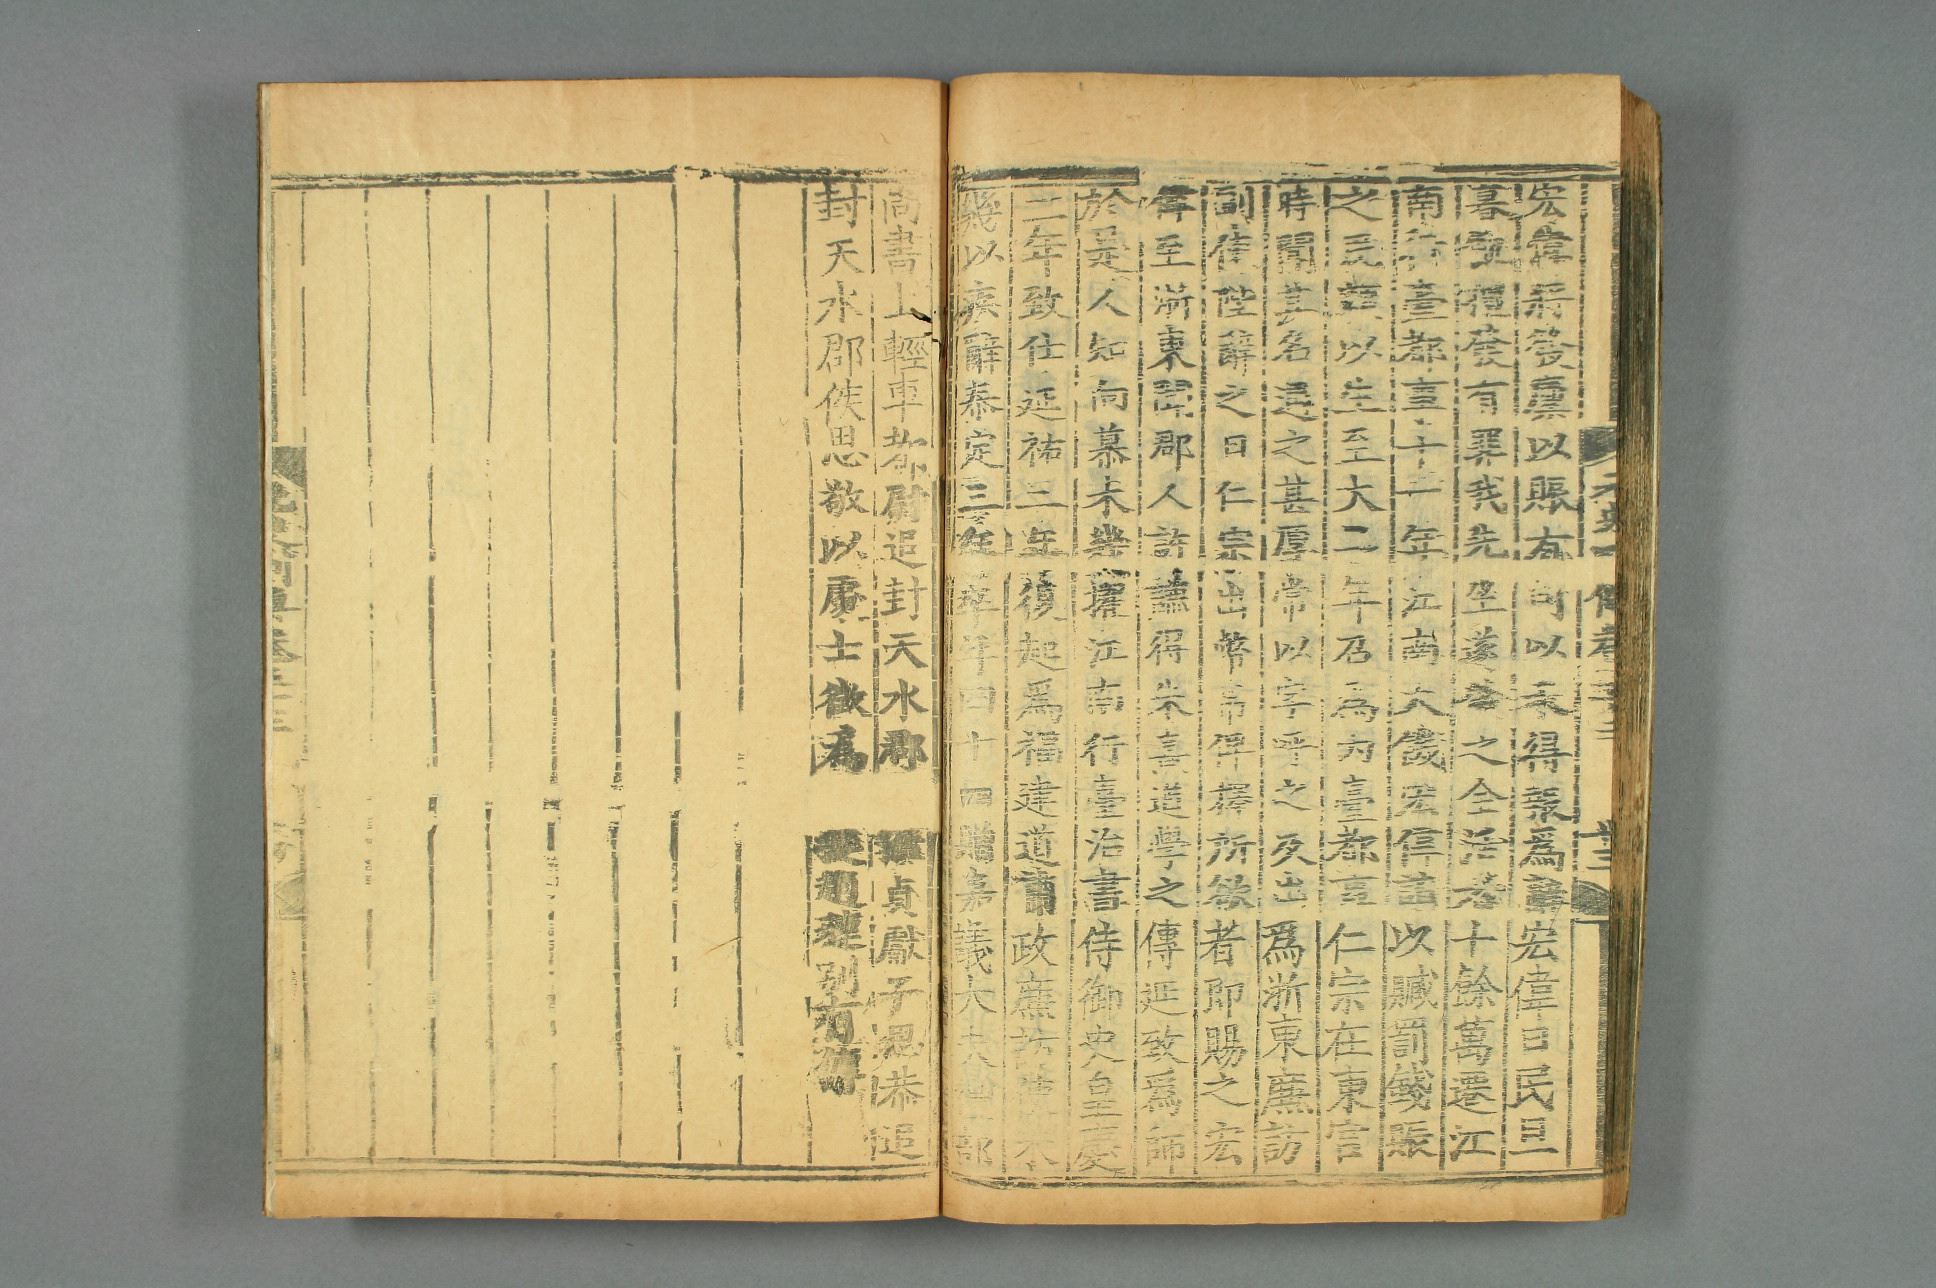 元史 傳卷五十三
宏偉將發廩以賑有司以未得報爲辭宏偉曰民旦
暮殍擅發有罪我先坐遂發之全活者十餘萬遷江
南行臺都事十一年江南大饑宏偉請以贓罰錢賑
之民頼以生至大二年召爲内臺都事仁宗在東宮
時聞其名遇之甚厚常以字呼之及出爲浙東廉訪
副使陛辭之日仁宗出幣帛俾擇所欲者即賜之宏
偉至浙東聞郡人許謙得朱熹道學之傳延致爲師
於是人知向慕未幾擢江南行臺治書侍御史皇慶
二年致仕延祐三年復起爲福建道肅政廉訪使未
幾以疾辭泰定三年卒年四十四贈嘉議大夫部
尚書上輕車都尉追封天水郡貞獻子思恭追
封天水郡侯思敬以處士徵爲趙璉别有傳